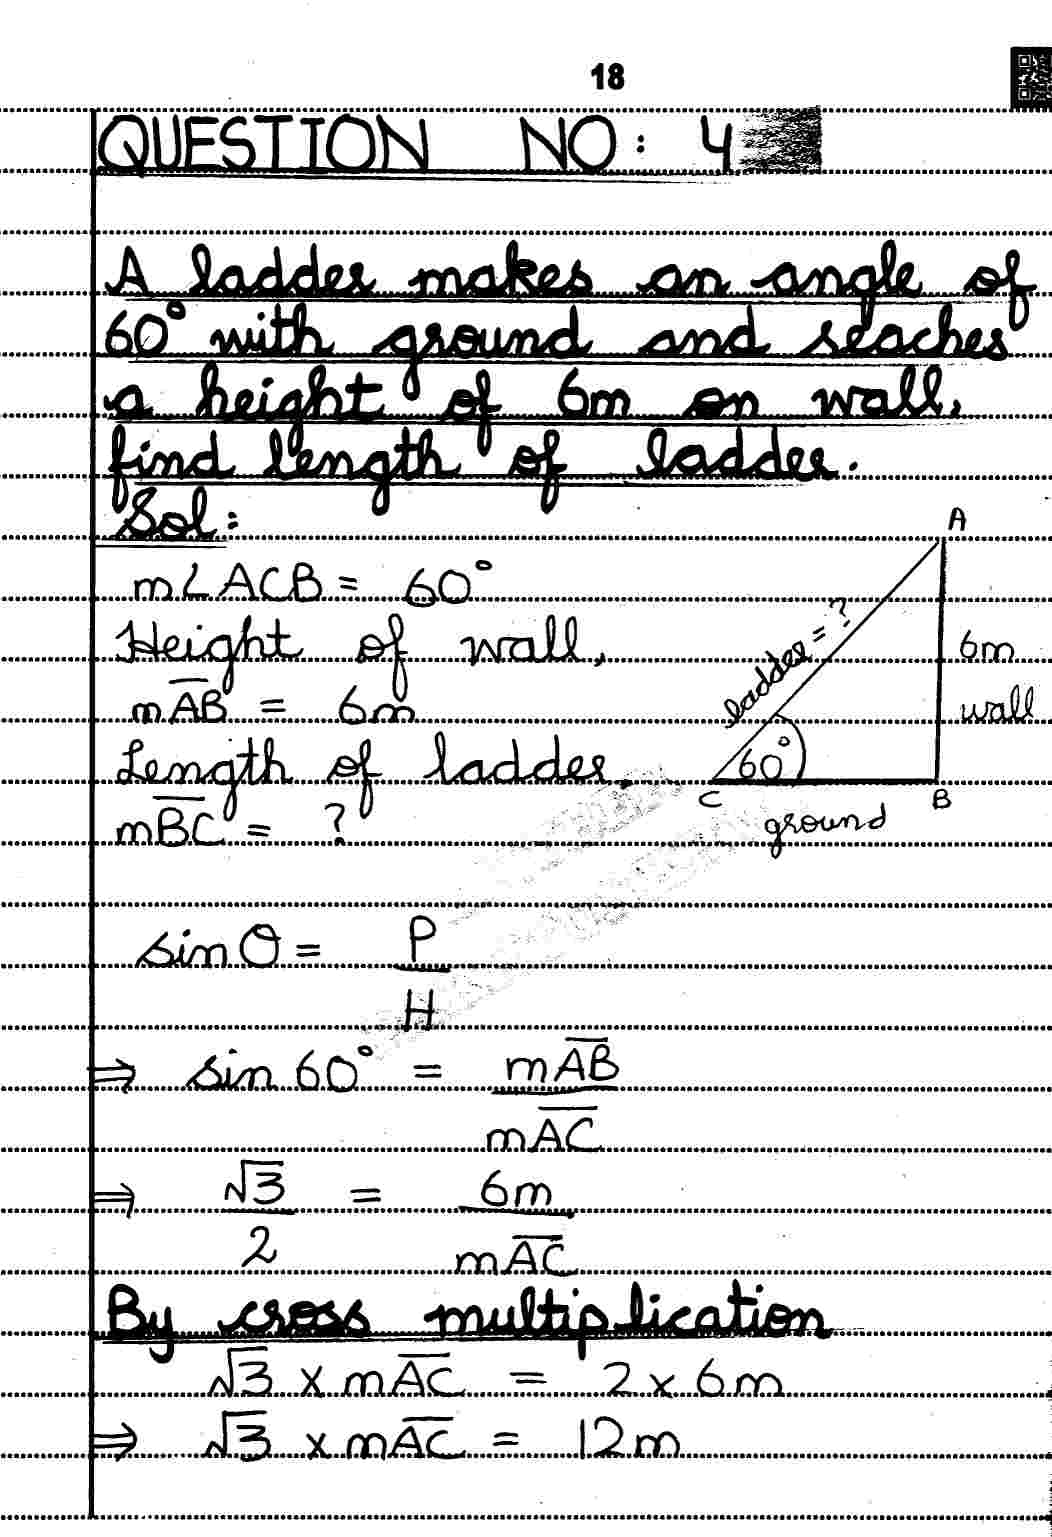 18
QUESTION NO: 4
A ladder makes an angle of
60° with ground and reaches
a height of 6m on wall,
find length of ladder.
Sol:
m∠ACB = 60°
Height of wall,
mA̅B̅ = 6m
Length of ladder,
mB̅C̅ = ?
A
ladder = ?
6m
wall
60°
C
B
ground
sin θ = P
H
⇒ sin 60° = mA̅B̅
mA̅C̅
⇒ √3 = 6m
2 mA̅C̅
By cross multiplication
√3 x mA̅C̅ = 2 x 6m
⇒ √3 x mA̅C̅ = 12m